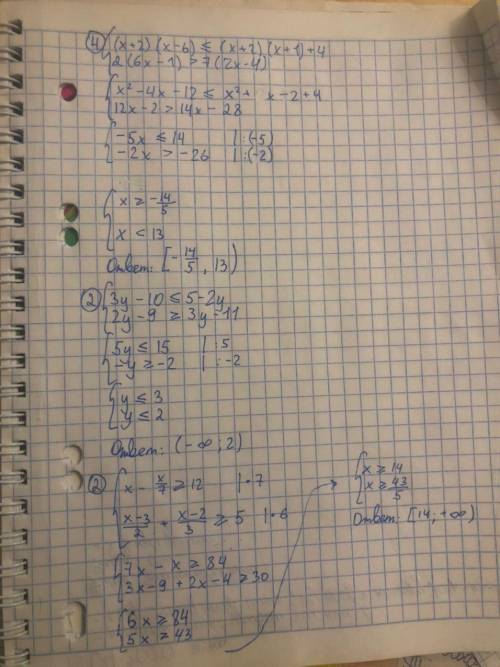 ④ (x+2)(x-6) ≤ (x+2)(x+1)+4
2(6x-1) > 7(2x-4)
x²-4x-12 ≤ x²+ x-2+4
12x-2 > 14x-28
-5x ≤ 14 | :(-5)
-2x > -26 | :(-2)
x ≥ -14/5
x < 13
Ответ: [-14/5, 13)
② 3y-10 ≤ 5-2y
2y-9 ≥ 3y-11
5y ≤ 15 | :5
-y ≥ -2 | :-2
y ≤ 3
y ≤ 2
Ответ: (-∞; 2)
② x - x/7 ≥ 12 | ·7
x-3/2 + x-2/3 ≥ 5 | ·6
7x - x ≥ 84
3x-9+2x-4 ≥ 30
6x ≥ 84
5x ≥ 43
x ≥ 14
x ≥ 43/5
Ответ: [14; +∞)